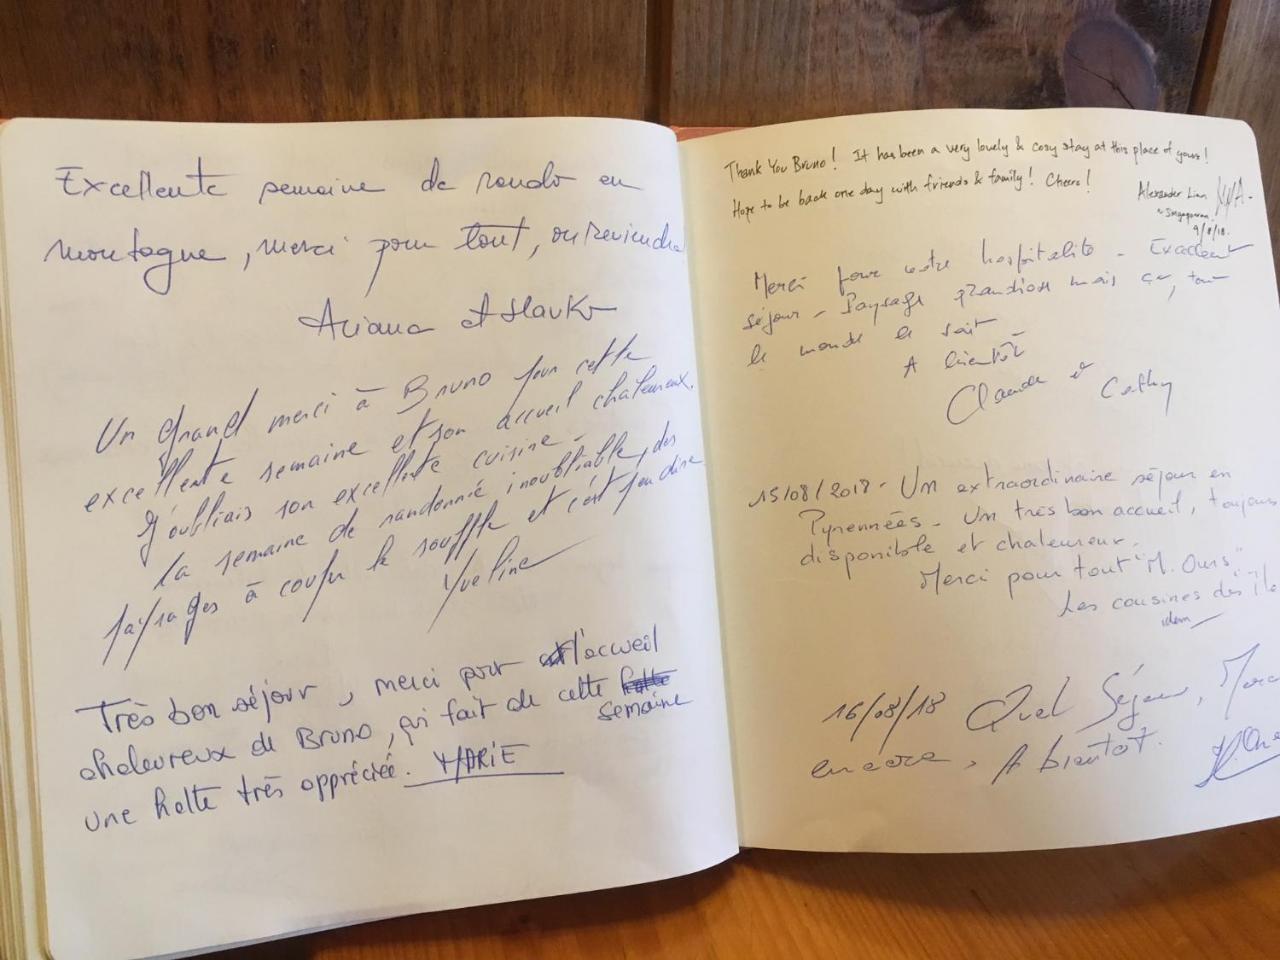 Excellente semaine de rando en
montagne, merci pour tout, on reviendra
Ariana et Slavko
Un grand merci à Bruno pour cette
excellente semaine et son accueil chaleureux.
J'oubliais son excellente cuisine -
La semaine de randonnié inoubliable, des
paysages à couper le souffle et c'est peu dire
Yveline
Très bon séjour, merci pour l'accueil
chaleureux de Bruno, qui fait de cette semaine
une halte très appréciée. MARIE
Thank You Bruno! It has been a very lovely & cosy stay at this place of yours!
Hope to be back one day with friends & family! Cheers!
Alexander Lian
Singaporean
9/8/18.
Merci pour votre hospitalité - Excellent
séjour - Paysage grandiose mais ça, tout
le monde le sait -
A bientôt
Claude et Cathy
15/08/2018 - Un extraordinaire séjour en
Pyrennées - Un très bon accueil, toujours
disponible et chaleureux.
Merci pour tout "M. Ours"
Les cousines des îles
16/08/18 Quel Séjour, Merci
encore, A bientôt.